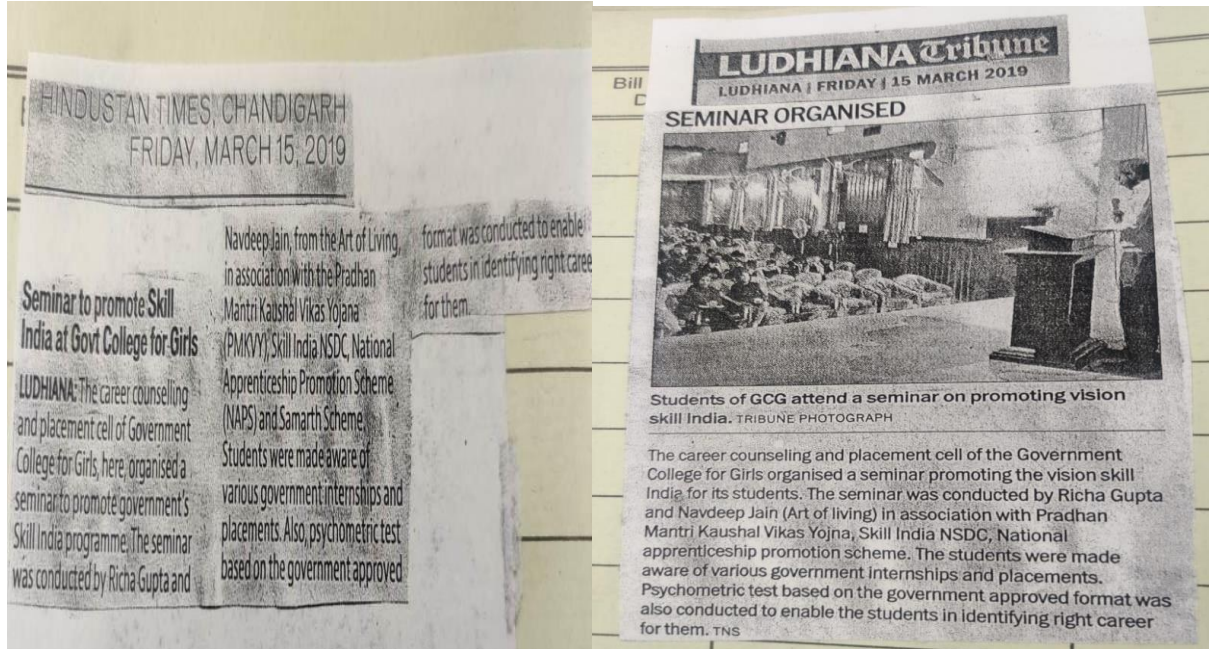 HINDUSTAN TIMES, CHANDIGARH
FRIDAY, MARCH 15, 2019
Seminar to promote Skill
India at Govt College for Girls
LUDHIANA: The career counselling
and placement cell of Government
College for Girls, here, organised a
seminar to promote government's
Skill India programme. The seminar
was conducted by Richa Gupta and
Navdeep Jain, from the Art of Living,
in association with the Pradhan
Mantri Kaushal Vikas Yojana
(PMKVY), Skill India NSDC, National
Apprenticeship Promotion Scheme
(NAPS) and Samarth Scheme.
Students were made aware of
various government internships and
placements. Also, psychometric test
based on the government approved
format was conducted to enable
students in identifying right caree
for them.
Bill
LUDHIANA Tribune
LUDHIANA | FRIDAY | 15 MARCH 2019
SEMINAR ORGANISED
Students of GCG attend a seminar on promoting vision
skill India. TRIBUNE PHOTOGRAPH
The career counseling and placement cell of the Government
College for Girls organised a seminar promoting the vision skill
India for its students. The seminar was conducted by Richa Gupta
and Navdeep Jain (Art of living) in association with Pradhan
Mantri Kaushal Vikas Yojna, Skill India NSDC, National
apprenticeship promotion scheme. The students were made
aware of various government internships and placements.
Psychometric test based on the government approved format was
also conducted to enable the students in identifying right career
for them. TNS